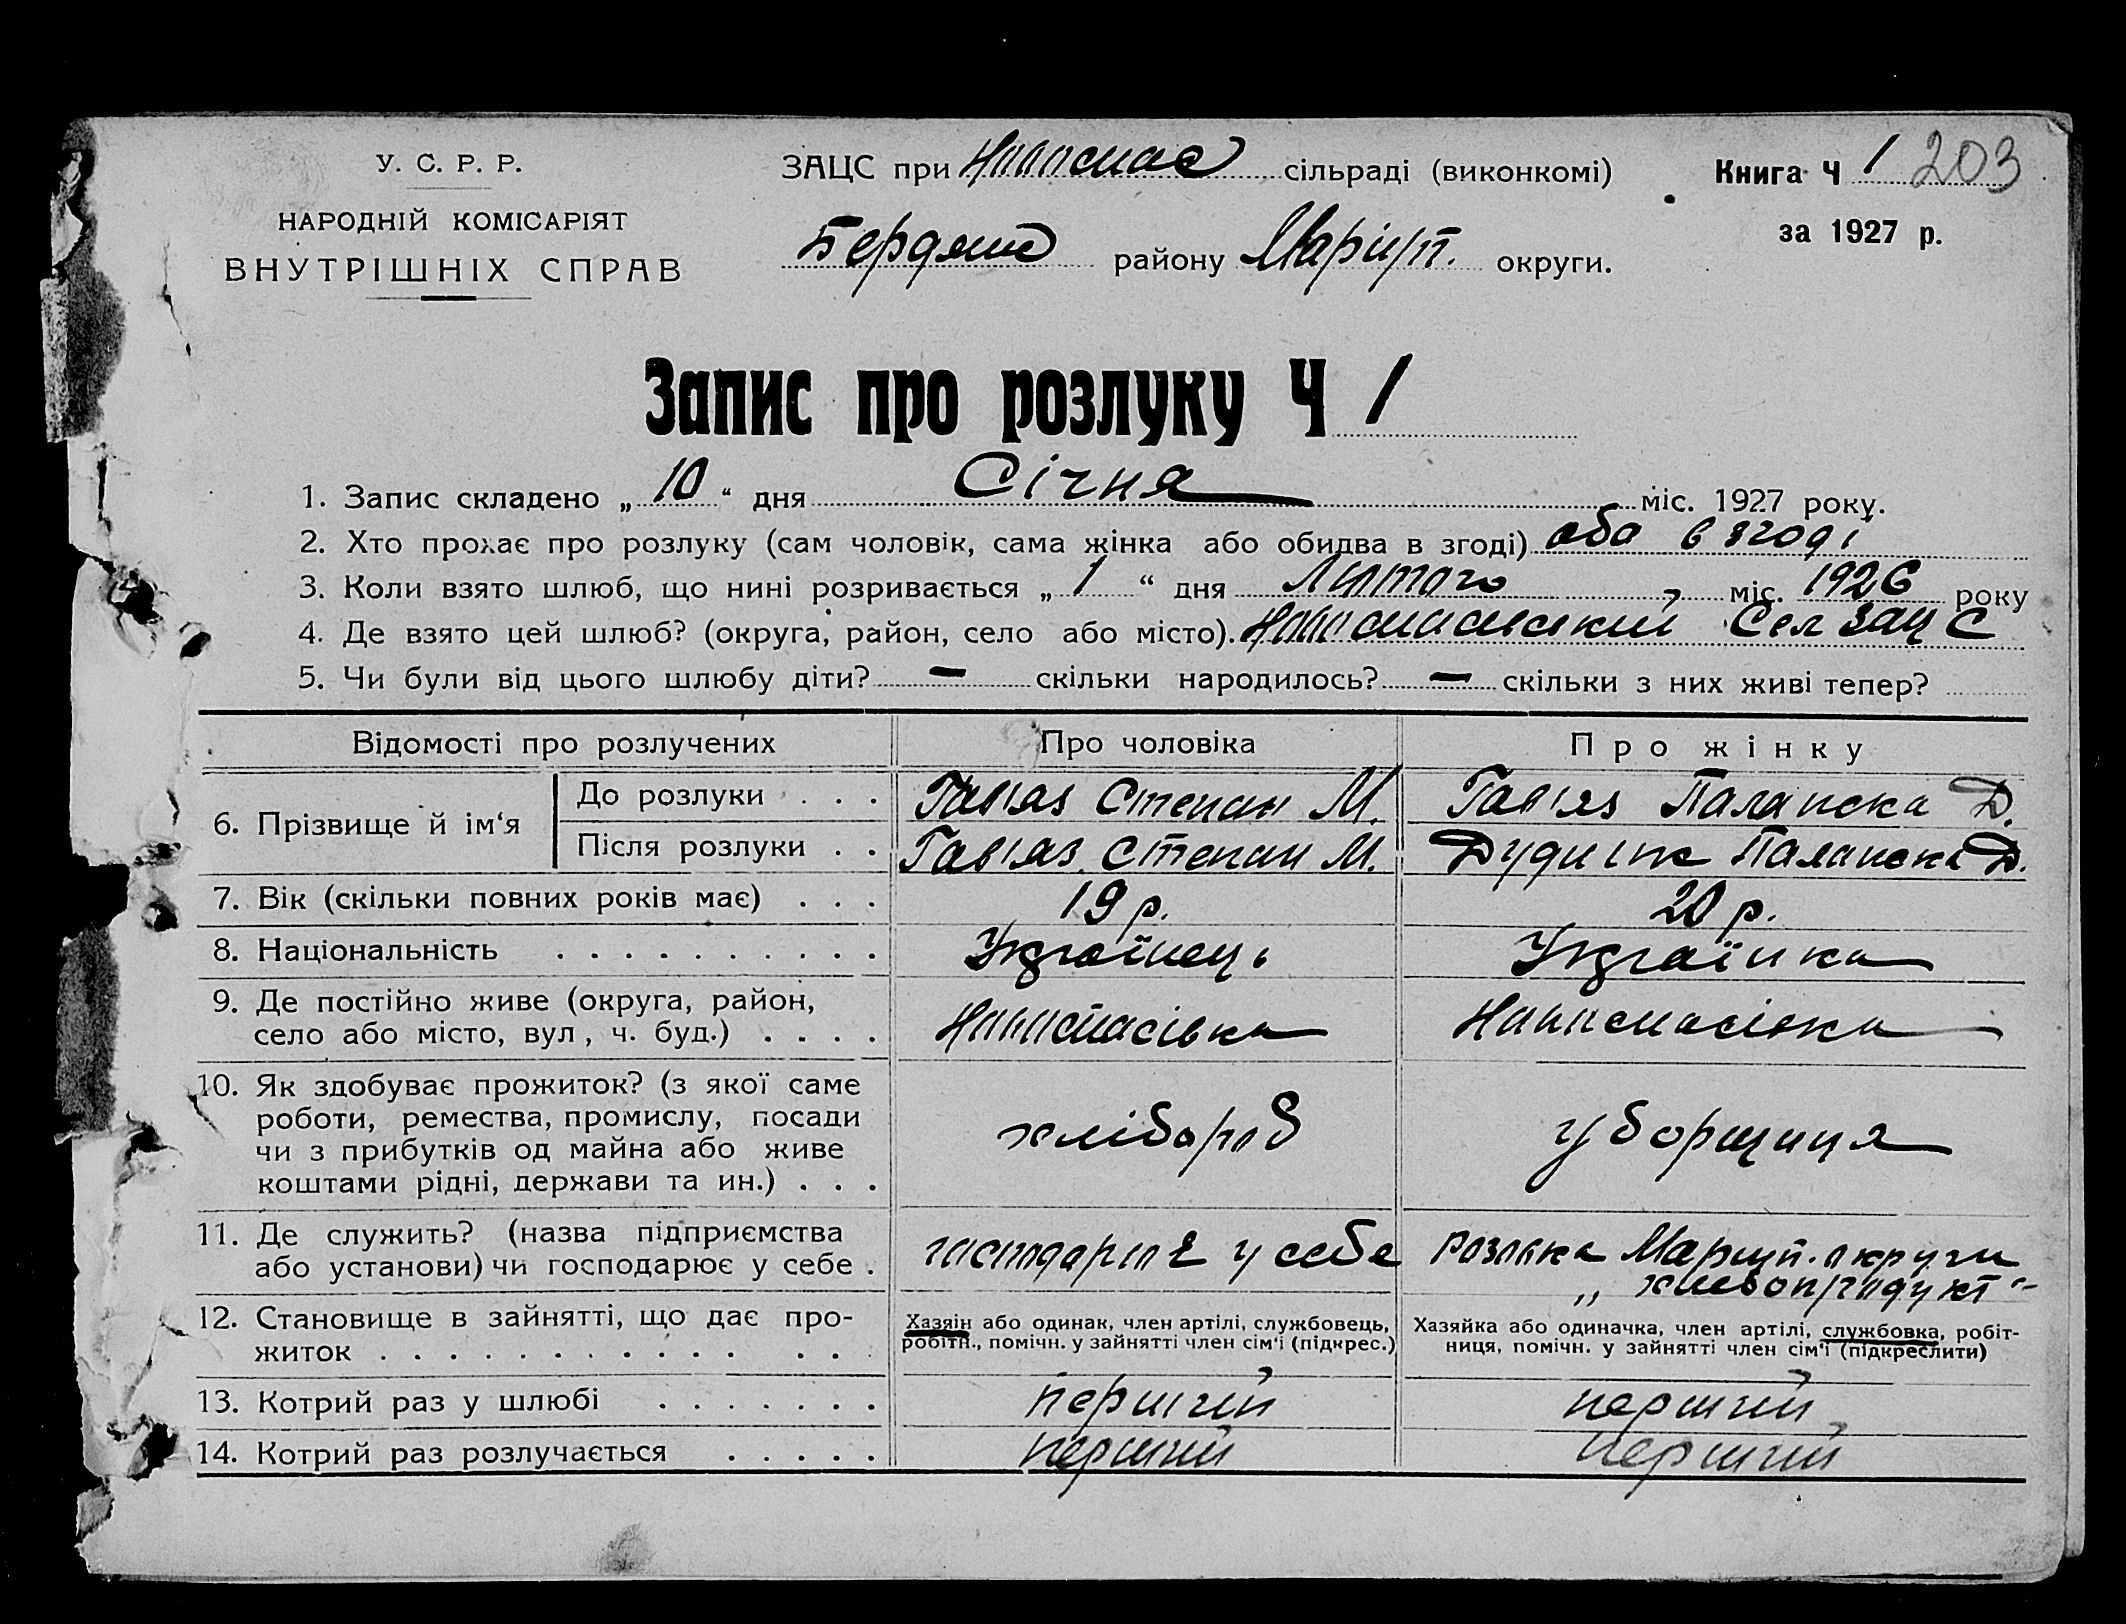 У. С. Р. Р.
НАРОДНІЙ КОМІСАРІЯТ
ВНУТРІШНІХ СПРАВ
ЗАЦС при Новоспас сільраді (виконкомі)
Бердянс району Маріуп. округи.
Книга Ч 1 203
за 1927 р.
Запис про розлуку Ч 1
1. Запис складено „ 10 “ дня Січня міс. 1927 року.
2. Хто прохає про розлуку (сам чоловік, сама жінка або обидва в згоді) оба в згоді
3. Коли взято шлюб, що нині розривається „ 1 “ дня Лютого міс. 1926 року
4. Де взято цей шлюб? (округа, район, село або місто). Сел ЗАЦС
5. Чи були від цього шлюбу діти? — скільки народилось? — скільки з них живі тепер?
Відомості про розлучених Про чоловіка Про жінку
6. Прізвище й ім‘я
До розлуки . . . Степан М. Д.
Після розлуки . . Степан М. Д.
7. Вік (скільки повних років має) . . . 19 р. 20 р.
8. Національність . . . . . . . . . . Українець Українка
9. Де постійно живе (округа, район,
село або місто, вул, ч. буд.) . . . . Новоспасівка Новоспасівка
10. Як здобуває прожиток? (з якої саме
роботи, ремества, промислу, посади
чи з прибутків од майна або живе
коштами рідні, держави та ин.) . . . хлібороб уборщиця
11. Де служить? (назва підприємства
або установи) чи господарює у себе . господарює у себе Маріуп. округи
„ хлебопродукт “
12. Становище в зайнятті, що дає про-
житок . . . . . . . . . . . . . . .
Хазяїн або одинак, член артілі, службовець,
робітн., помічн. у зайнятті член сім‘ї (підкрес.)
Хазяйка або одиначка, член артілі, службовка, робіт-
ниця, помічн. у зайнятті член сім‘ї (підкреслити)
13. Котрий раз у шлюбі . . . . . . . перший перший
14. Котрий раз розлучається . . . . . перший перший